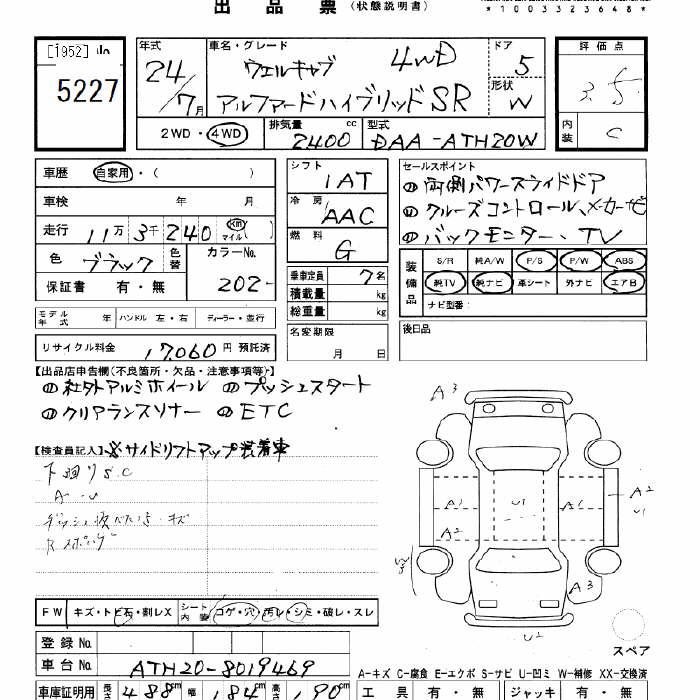 出品票（状態説明書）
*1003323648*
[1952]
5227
年式 車名・グレード ドア 評価点
24/7月 ウェルキャブ 4WD 5 3.5
アルファードハイブリッドSR 形状 W
2WD・4WD 排気量 2400cc 型式 DAA-ATH20W 内装 C
車歴 自家用・( )
車検 年 月
走行 11万3千240 km マイル ( )
色 ブラック 色替 カラーNo. 202-
保証書 有・無
シフト IAT
冷房 AAC
燃料 G
乗車定員 7名
積載量 kg
総重量 kg
名変期限 月 日
セールスポイント
両側パワースライドドア
クルーズコントロール、メーカーナビ
バックモニター、TV
装備品 S/R 純A/W P/S P/W ABS
純TV 純ナビ 革シート 外ナビ エアB
ナビ型番:
後日品
モデル年式 年 ハンドル 左・右 ディーラー・並行
リサイクル料金 17,060円 預託済
【出品店申告欄(不良箇所・欠品・注意事項等)】
社外アルミホイール プッシュスタート
クリアランスソナー ETC
【検査員記入】 ※サイドリフトアップ装着車
下回りS.C
A・U
A3
A1 U1 A1 A2
U1
A2
W3
A3
U2
スペア
FW キズ・トビ石・割レX シート内装 コゲ・穴・汚レ・シミ・破レ・スレ
登録No.
車台No. ATH20-8019469
A-キズ C-腐食 E-エクボ S-サビ U-凹ミ W-補修 XX-交換済
車庫証明用 長さ 488cm 幅 184cm 高さ 190cm 工具 有・無 ジャッキ 有・無